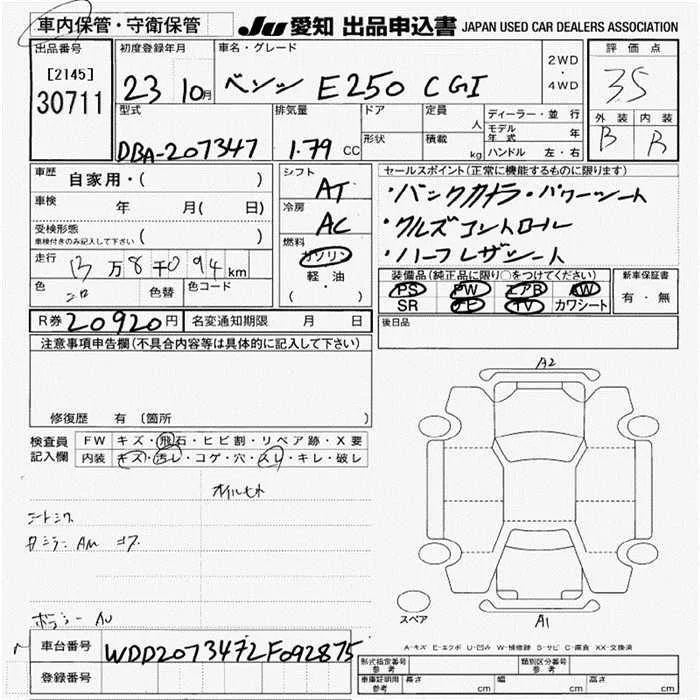 車内保管・守衛保管
JU 愛知 出品申込書 JAPAN USED CAR DEALERS ASSOCIATION
出品番号
[2145]
30711
初度登録年月
23 10月
車名・グレード
ベンツ E250 CGI
2WD
・
4WD
評価点
3.5
外装 内装
B B
型式
DBA-207347
排気量
1.79 CC
ドア
形状
定員
人
積載
kg
ディーラー・並行
モデル年式 年
ハンドル 左・右
車歴 自家用・( )
車検 年 月( 日)
受検形態
車検付きのみ記入して下さい ( )
走行 13万8千094km
色
色替
色コード
シフト
AT
冷房
AC
燃料
ガソリン
軽・油
( )
セールスポイント(正常に機能するものに限ります)
・バックカメラ・パワーシート
・クルズコントロール
・ハーフレザシート
装備品(純正品に限り○をつけてください)
PS PW エアB AW
SR ナビ TV カワシート
新車保証書
有・無
R券 20920円
名変通知期限 月 日
後日品
注意事項申告欄(不具合内容等は具体的に記入して下さい)
修復歴 有 〔箇所 〕
検査員記入欄
FW キズ・飛石・ヒビ割・リペア跡・X要
内装 キズ・汚レ・コゲ・穴・スレ・キレ・破レ
オイルヒホ
A2
A1
スペア
A-キズ E-エクボ U-凹み W-補修跡 S-サビ C-腐食 XX-交換済
車台番号 WDD2073472F092875
登録番号
形式指定番号
参考
類別区分番号
参考
車庫証明用
参考
長さ cm
幅 cm
高さ cm